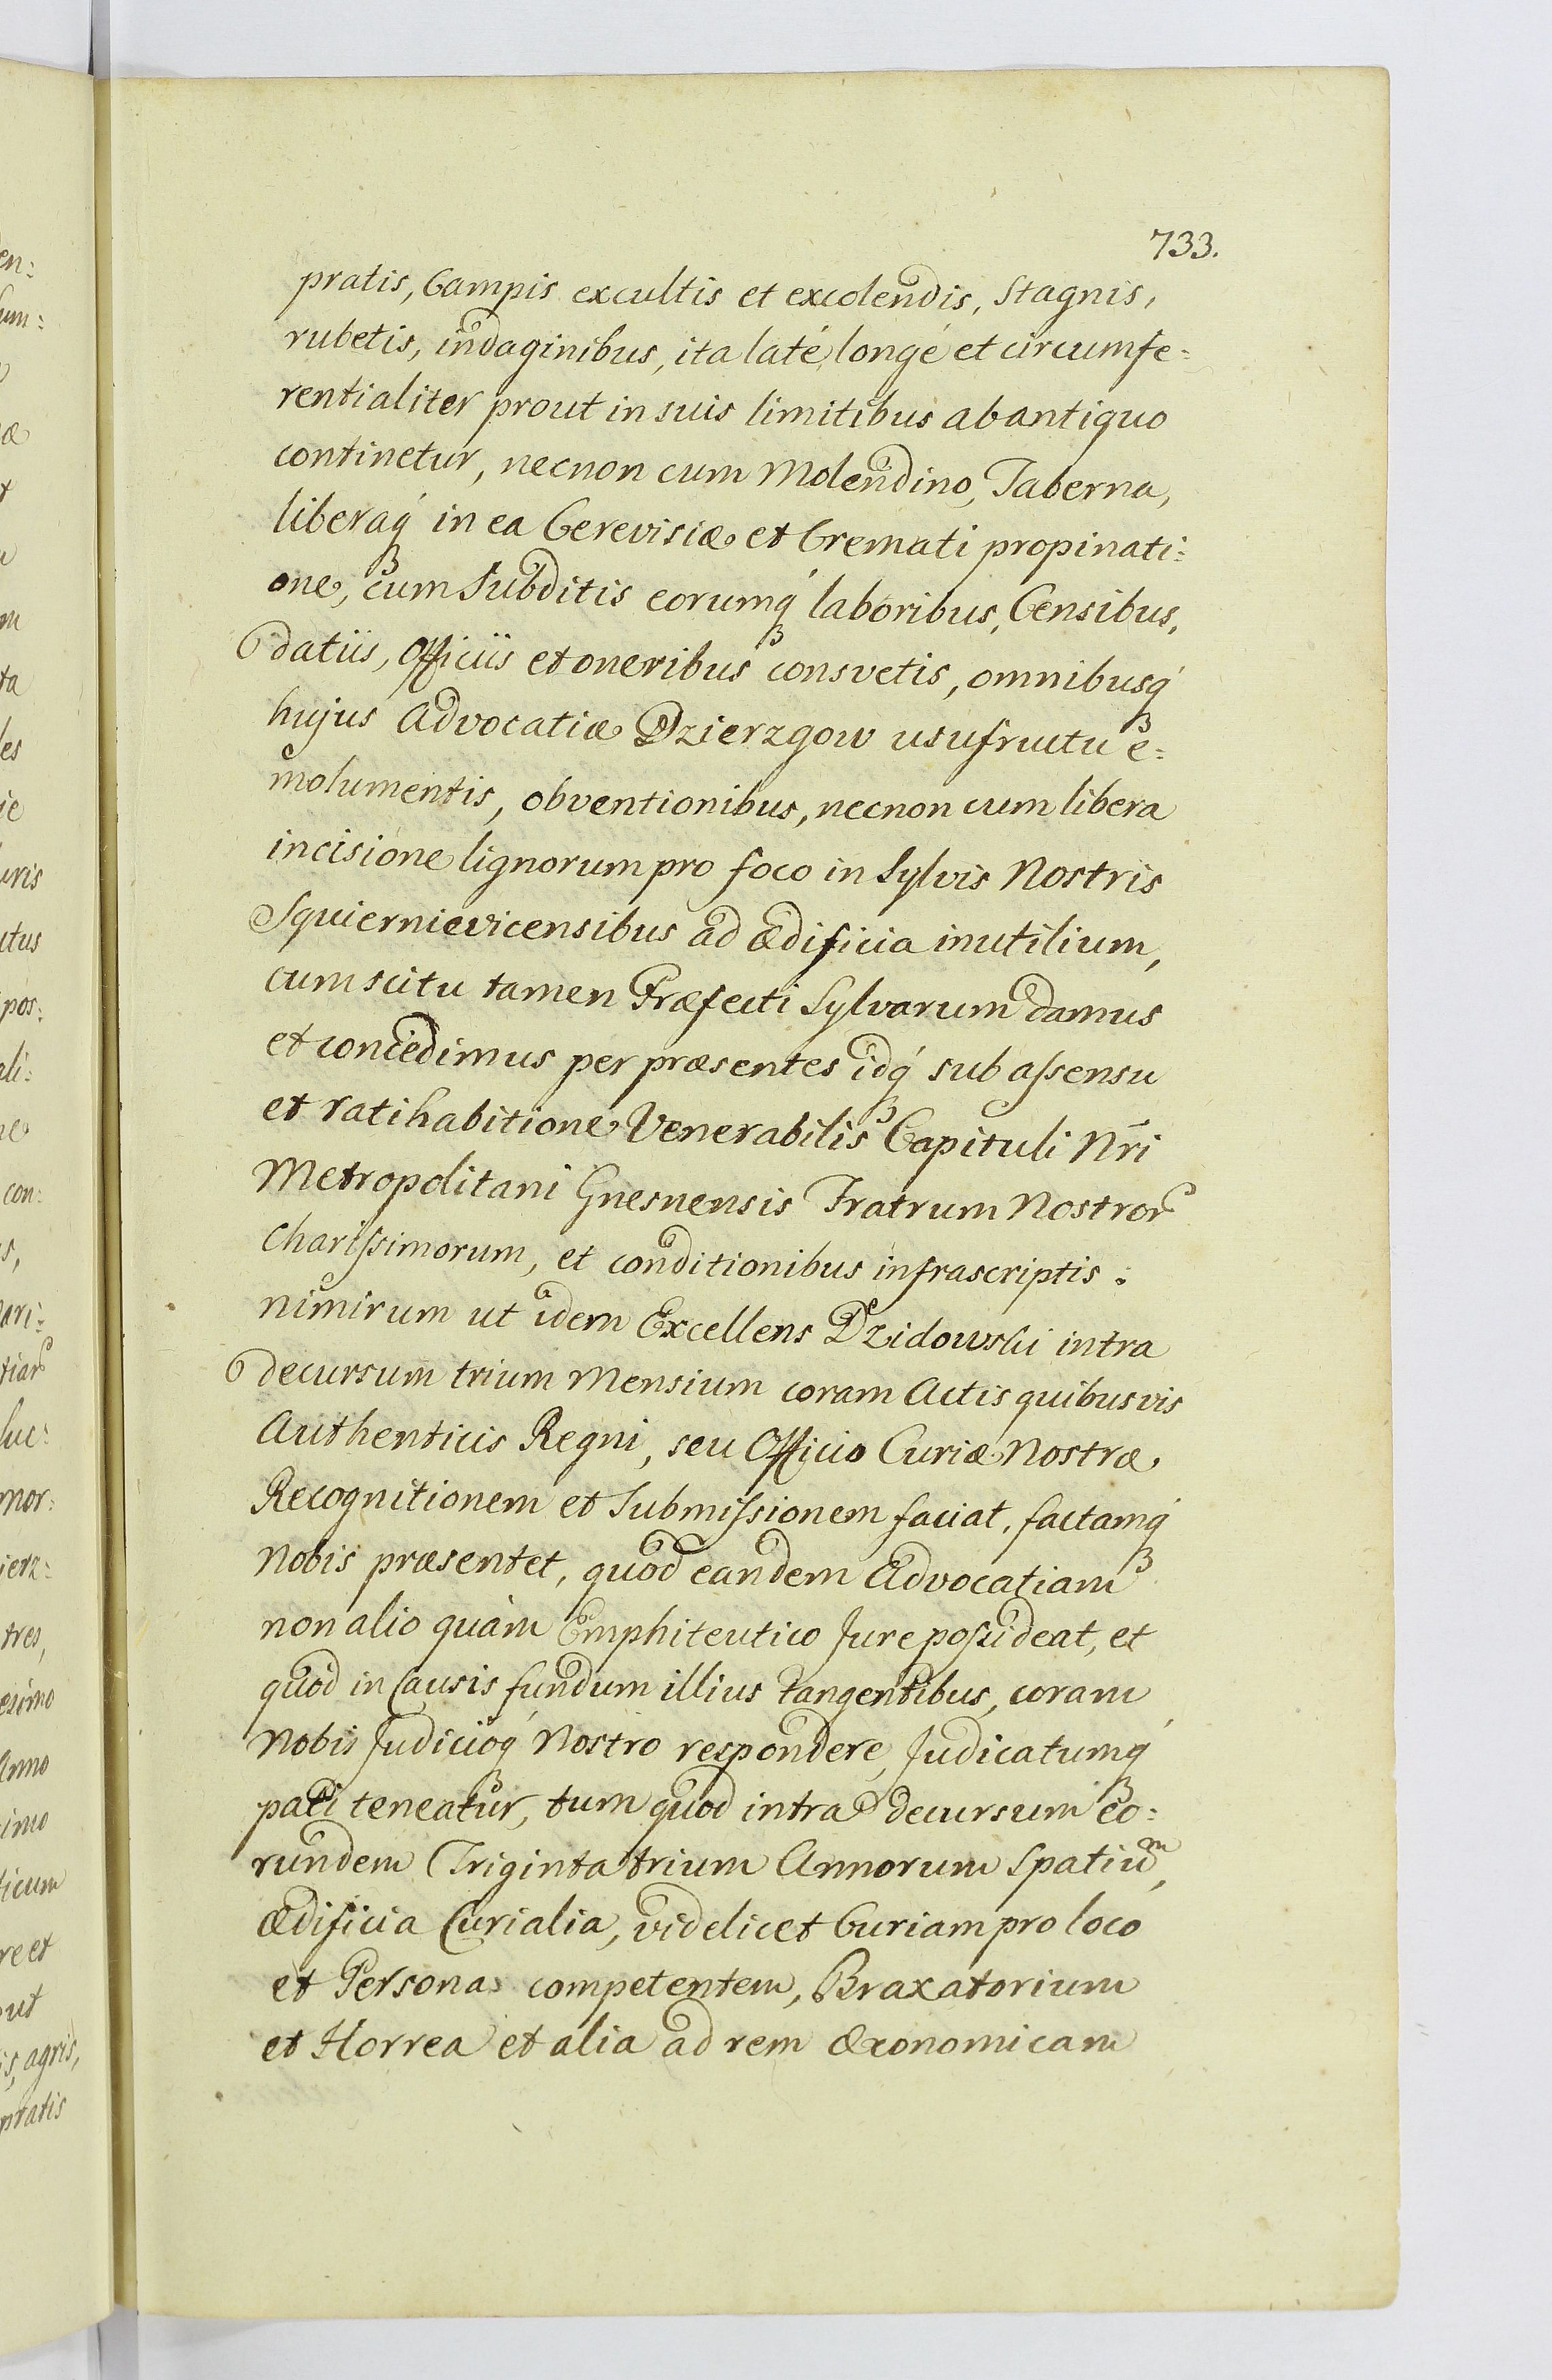 733.
pratis, Campis excultis et excolendis, Stagnis,
rubetis, indaginibus, ita laté, longé et circumfe=
rentialiter prout in suis limitibus ab antiquo
continetur, necnon cum Molendino, Taberna,
liberaq́ꝫ in ea Cerevisiæ et Cremati propinati=
one, cum Subditis eorumq́ꝫ laboribus, Censibus,
datiis, Officiis et oneribus consvetis, omnibusq́ꝫ
hujus Advocatiæ Dzierzgow usufructu e=
molumentis, obventionibus, necnon cum libera
incisione lignorum pro foco in Sylvis Nostris
Squiernievicensibus ad ædificia inutilium,
cum scitu tamen Præfecti Sylvarum damus
et concedimus per præsentes idq́ꝫ sub assensu
et ratihabitione Venerabilis Capituli Nr̃i
Metropolitani Gnesnensis Fratrum Nostror
Charissimorum, et conditionibus infrascriptis:
nimirum ut idem Excellens Dzidowski intra
decursum trium Mensium coram Actis quibusvis
Authenticis Regni, seu Officio Curiæ Nostræ
Recognitionem et Submissionem faciat, factamq́ꝫ
Nobis præsentet, quòd eandem Advocatiam
non alio quàm Emphiteutico Jure possideat, et
quòd in Causis fundum illius tangentibus, coram
Nobis Judicioq́ꝫ Nostro respondere, Judicatumq́ꝫ
pati teneatur, tum quòd intra decursum eo=
rundem Triginta trium Annorum Spatiũm,
ædificia Curialia, videlicet Curiam pro loco
et Persona competentem, Braxatorium
et Horrea et alia ad rem Œconomicam
en:
um:
æ
m
ta
les
ie
uris
ctus
pos:
ali:
con:
s,
ari:
tiar
luc:
mor:
ierz:
tres,
esimo
Anno
imo
ticum
re et
out
is, agris,
pratis